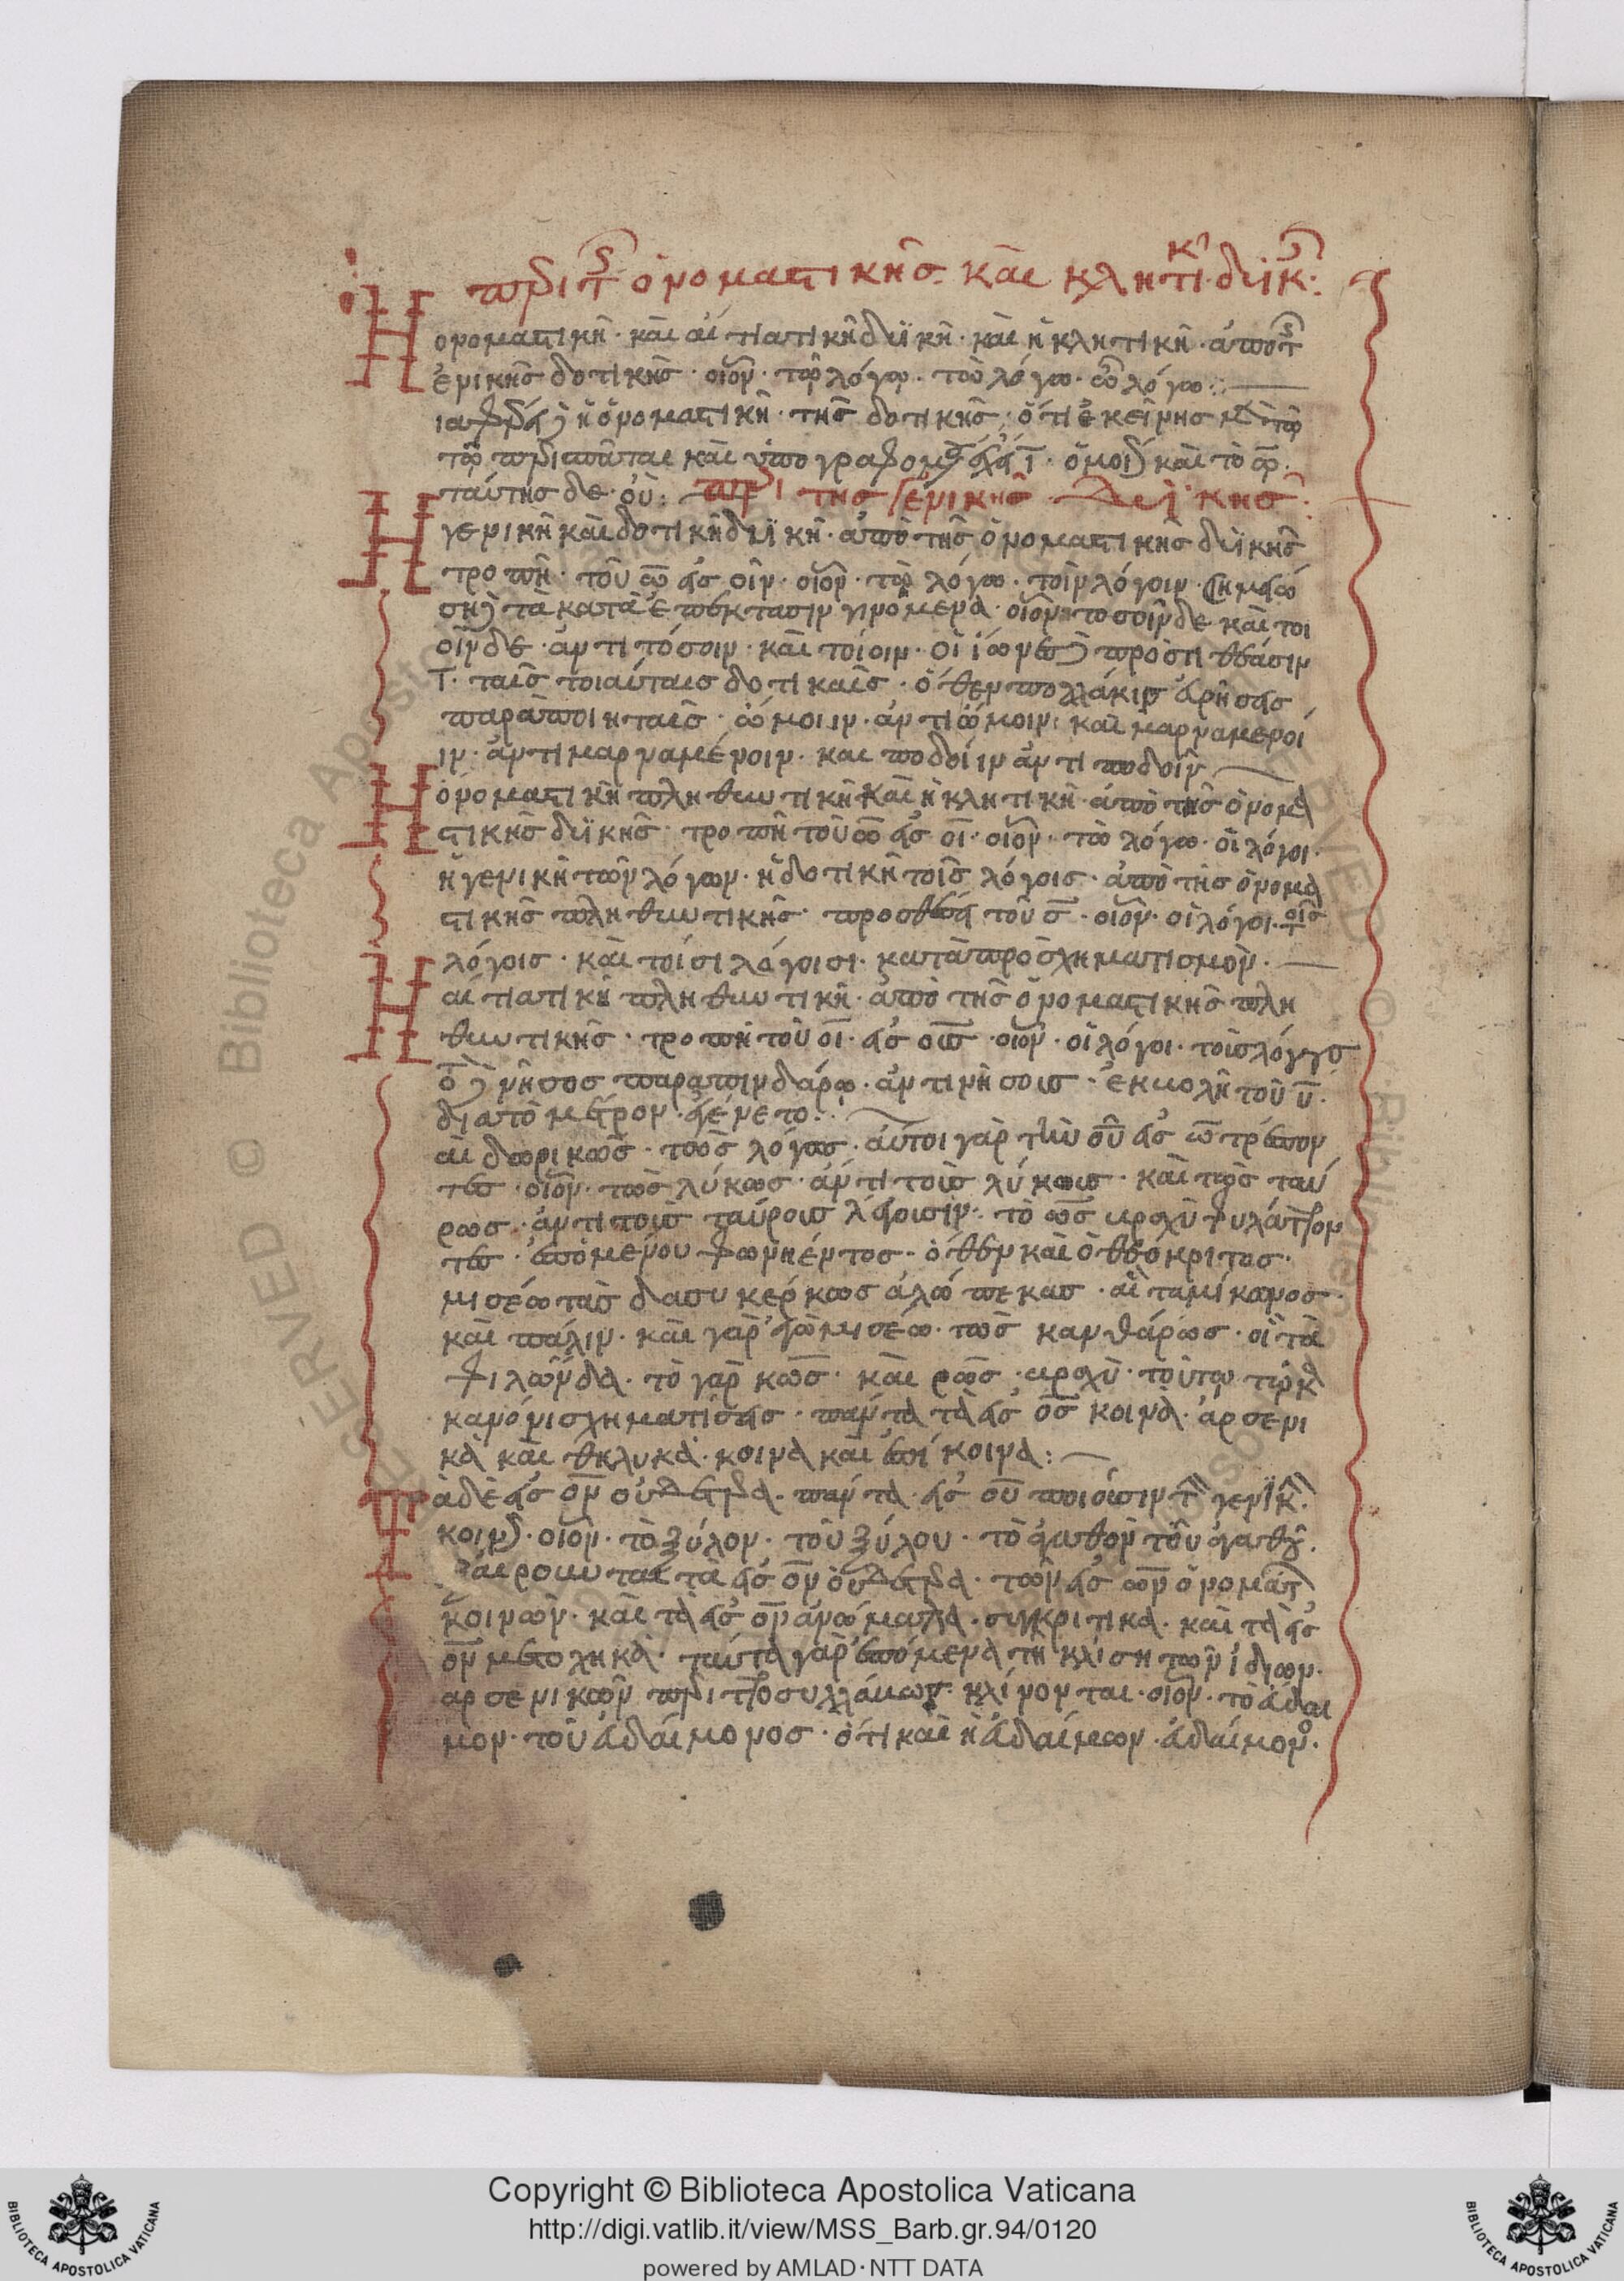 περὶ τ ὀνοματικῆς καὶ κλητικ δυϊκ:
Η
ονοματικὴ· καὶ αἰτιατικὴ δυϊκὴ· καὶ ἡ κλητικὴ· ἀπὸ τ
ἑνικῆς δοτικῆς· οἷον· τῶ λόγω· τὼ λόγω· ὦ λόγω:
ἡ ὀνοματικὴ· τῆς δοτικῆς· ὅτι ἐκείνης
περισπᾶται καὶ ὑπογραφ ὁμοί καὶ τὸ
ταύτης δὲ οὔ: περὶ της γενικῆς δυϊκης:
Η
γενικὴ καὶ δοτικὴ δυϊκὴ· ἀπὸ τῆς ὀνοματικῆς δυϊκῆς
τροπῆ· τοῦ ω εἰς οιν· οἷον· τὼ λόγω· τοῖν λόγοιν·
τὰ κατὰ ἐπέκτασιν γινόμενα· οἷον τοσοῖνδε καὶ τοι
οῖνδε· ἀντὶ τόσοιν· καὶ τοίοιν· οἱ ἴωνες προστιθέασιν
ι· ταῖς τοιαύταις δοτικαῖς· ὅθεν πολλάκις εὑρήσεις
παρὰ ποιηταῖς· ὤμοιιν· ἀντὶ ὤμοιν· καὶ μαρναμενοί
ιν· ἀντὶ μαρναμένοιν· καὶ ποδοίιν ἀντὶ ποδοῖν
Η
ὀνοματικὴ πληθυντικὴ καὶ ἡ κλητικὴ· ἀπὸ τῆς ὀνομα
τικῆς δυϊκῆς· τροπῆ τοῦ ω εἰς οι· οἷον· τὼ λόγω· οἱ λόγοι·
ἡ γενικὴ τῶν λόγων· ἡ δοτικὴ τοῖς λόγοις· ἀπὸ τῆς ὀνομα
τικῆς πληθυντικῆς· προσθέσει τοῦ σ· οἷον· οἱ λόγοι· τοῖς
λόγοις· καὶ τοίσι λόγοισι· κατὰ προσχηματισμόν·
Η
αἰτιατικὴ πληθυντικὴ· ἀπὸ τῆς ὀνοματικῆς πλη
θυντικῆς· τροπῆ τοῦ οι· εἰς ους· οἷον· οἱ λόγοι· τοὺς λόγους
νῆσος παρὰ πινδάρω· ἀντὶ νήσους· ἐκβολῆ τοῦ υ·
διὰ τὸ μέτρον· γέγονετο:
αἱ δωρικῶς· τοὺς λόγως· αὐτοὶ γὰρ τὴν ου εἰς ω τρέπον
τες· οἷον· τὼς λύκως· ἀντὶ τοὺς λύκους· καὶ τὼς ταύ
ρως· ἀντὶ τοὺς ταύρους λέγουσιν· τὸ ως βραχὺ φυλάττον
τες· ἑπομένου φωνήεντος· ὅθεν καὶ ὁ θεόκριτος·
μισέω τὰς δασυκέρκως ἀλώπεκας· αἳ τὰ μίκωνος·
καὶ πάλιν· καὶ γὰρ ἐγὼ μισέω· τὼς κανθάρως· οἳ τὰ
φιλώνδα· τὸ γὰρ κως· καὶ ρως· βραχὺ· τούτω τῶ κα
κανόνι σχηματίσεις· πάντα τὰ εἰς ος κοινὰ· ἀρσενι
κὰ καὶ θηλυκὰ· κοινὰ καὶ ἐπίκοινα:
Τ
ὰ δὲ εἰς ον οὐδέτερα· πάντα· εἰς ου ποιοῦσιν τ γενικ·
κοιν· οἷον· τὸ ξύλον· τοῦ ξύλου· τὸ ἀγαθὸν τοῦ ἀγαθοῦ·
ἐξαιροῦνται τὰ εἰς ον οὐδέτερα· τῶν εἰς ων ὀνομάτ
κοινῶν· καὶ τὰ εἰς ον ἀνώμαλα· συγκριτικὰ· καὶ τὰ εἰς
ον μετοχηκὰ· ταῦτα γὰρ ἑπόμενα τῆ κλίση τῶν ἰδίων·
αρσενικῶν περιττοσυλλάβως κλίνονται· οἷον· τὸ εὔδαι
μον· τοῦ εὐδαίμονος· ὅτι καὶ ἡ εὐδαίμων· εὐδαίμον·
RESERVED © Biblioteca Apostolica
Copyright © Biblioteca Apostolica Vaticana
http://digi.vatlib.it/view/MSS_Barb.gr.94/0120
powered by AMLAD·NTT DATA
BIBLIOTECA APOSTOLICA VATICANA
BIBLIOTECA APOSTOLICA VATICANA